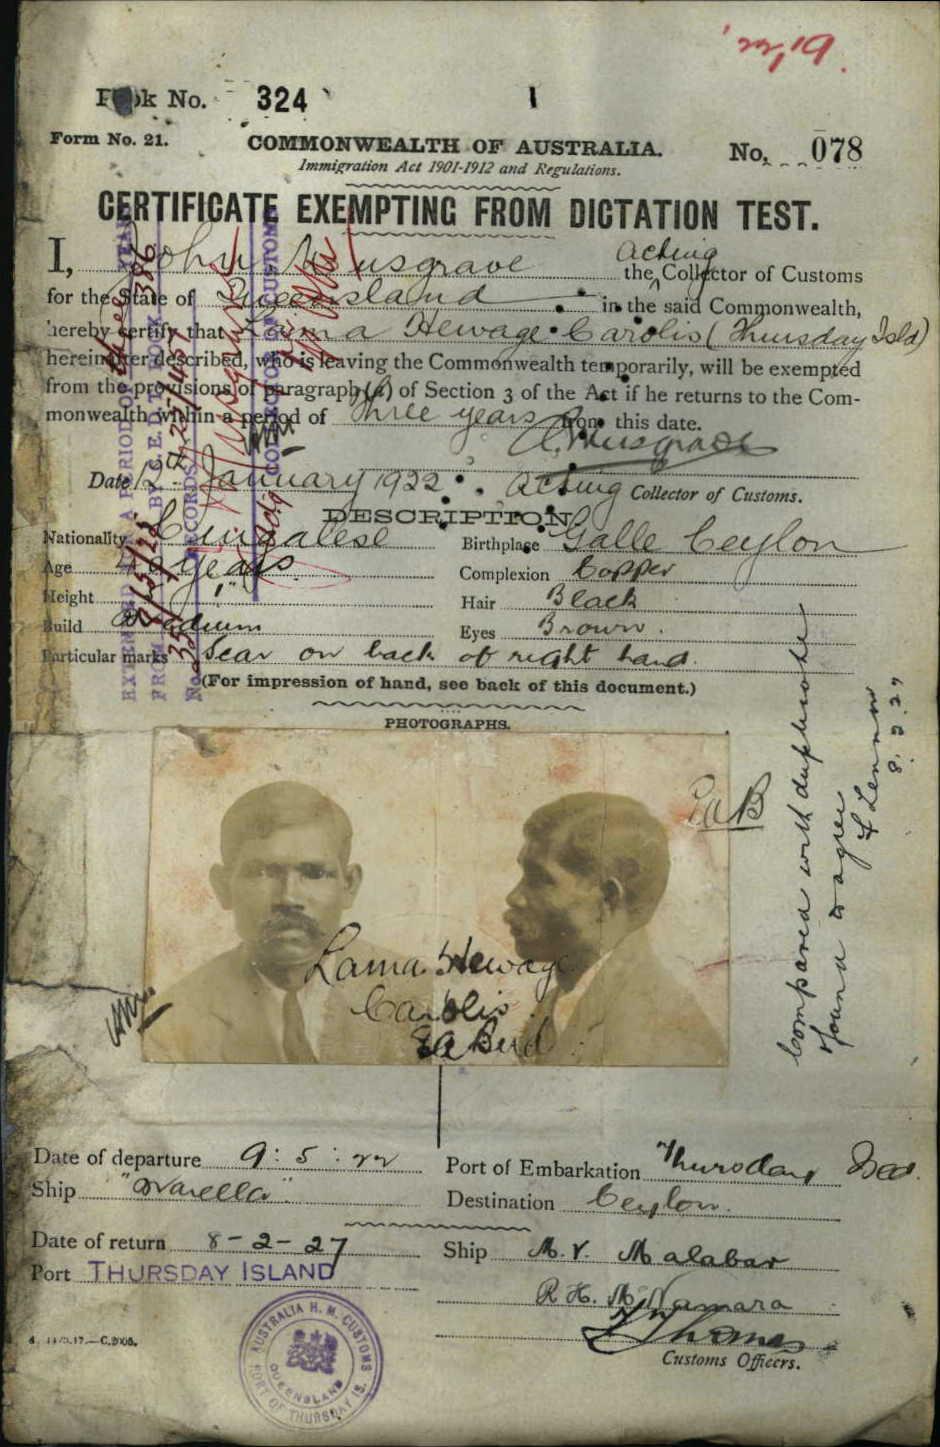 '22/19
Book No. 324 1
Form No. 21. COMMONWEALTH OF AUSTRALIA. No. 078
Immigration Act 1901-1912 and Regulations.
CERTIFICATE EXEMPTING FROM DICTATION TEST.
I, John Musgrave Acting the Collector of Customs
for the State of Queensland in the said Commonwealth,
hereby certify that Lama Hewage Carolis (Thursday Isld)
hereinafter described, who is leaving the Commonwealth temporarily, will be exempted
from the provisions of paragraph (a) of Section 3 of the Act if he returns to the Com-
monwealth within a period of Three years from this date.
Musgrave
Date 12th January 1922. Acting Collector of Customs.
DESCRIPTION
Nationality Cingalese Birthplace Galle Ceylon
Age years Complexion Copper
Height Hair Black
Build Medium Eyes Brown.
Particular marks Scar on back of right hand.
(For impression of hand, see back of this document.)
PHOTOGRAPHS.
EAB
Lama Hewage
Carolis
EA Bird
Compared with duplicate
& found to agree
Lennon
8.2.27
EXTENDED FOR A PERIOD OF YEARS
FROM BY C.E.D.T. BOOK 386
No. RECORDS
COLLECTOR OF CUSTOMS
Date of departure 9:5:22 Port of Embarkation Thursday Isd.
Ship "Mataram" Destination Ceylon.
Date of return 8-2-27 Ship M.V. Malabar
Port THURSDAY ISLAND
R H. McNamara
Thomas
Customs Officers.
C.2008.
AUSTRALIA H. M. CUSTOMS
QUEENSLAND
PORT OF THURSDAY IS.